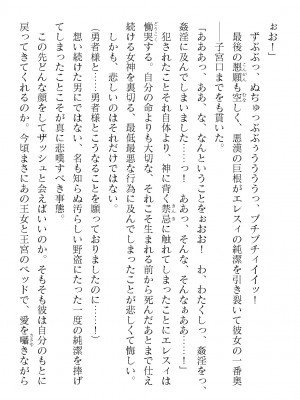 おぉ！」
ずぶっ、ぬちゅっぷぷぅうううっ、ブチブチィイイッ！
最後の懇願も空しく、悪漢の巨根がエレスィの純潔を引き裂いて彼女の一番奥
――子宮口までをも貫いた。
「あああっ、ああ、な、なんということをぉおお！　わ、わたくしっ、姦淫を、
姦淫に及んでしまいました……っ！　ああっ、そんな、そんなぁああ……！」
犯されたことそれ自体より、神に背く禁忌に触れてしまったことにエレスィは
慟哭する。自分の命よりも大切な、それこそ生まれる前から死んだあとまで仕え
続ける女神を裏切る、最低最悪な行為に及んでしまったことが悲しくて悔しい。
しかも、悲しいのはそれだけではない。
（勇者様と……勇者様とこうなることを願っておりましたのに……！）
想い続けた男にではない、名も知らぬ汚らしい野盗にたった一度の純潔を捧げ
てしまったことこそが真に悲嘆すべき事態。
この先どんな顔をしてザッシュと会えばいいのか。そもそも彼は自分のもとに
戻ってきてくれるのか。今頃まさにあの王女と王宮のベッドで、愛を囁きながら